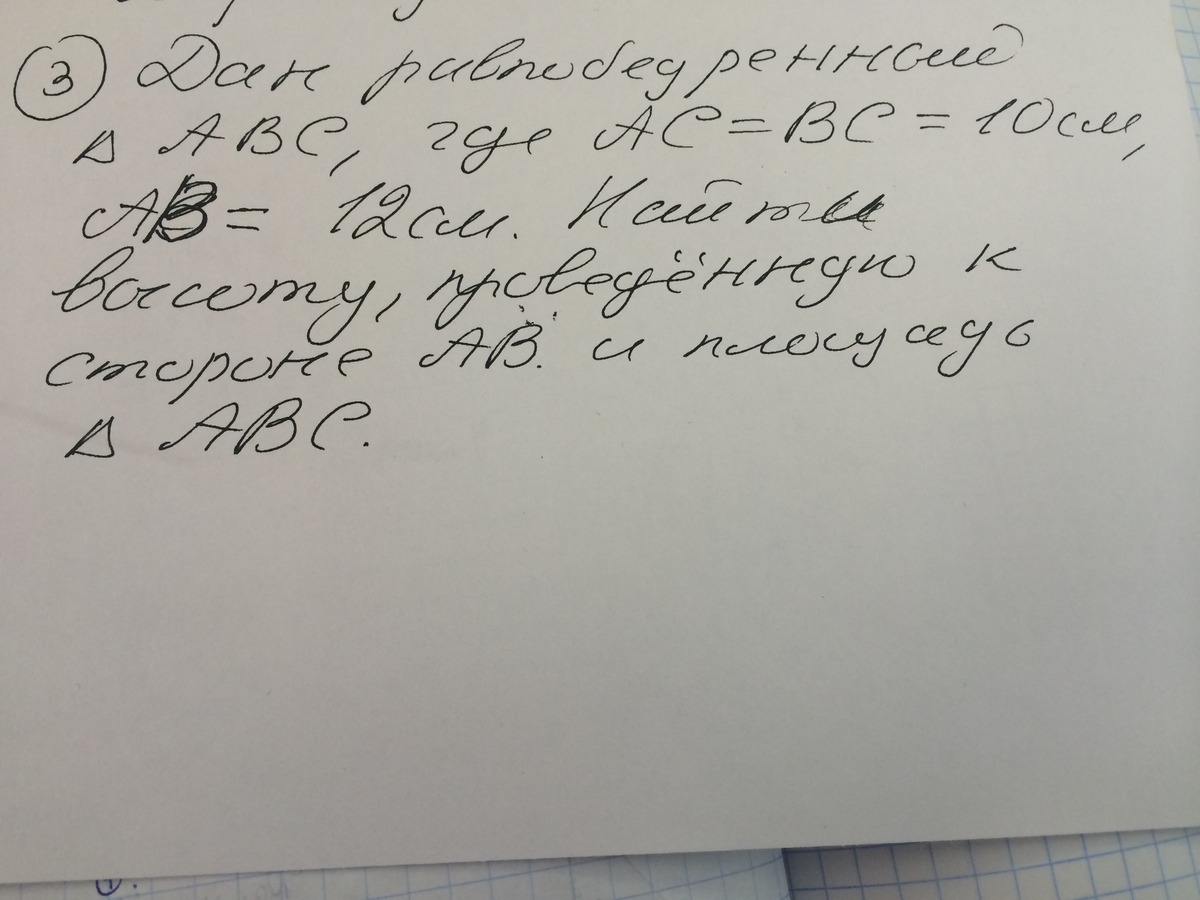 ③ Дан равнобедренный
Δ ABC, где AC = BC = 10 см,
AB = 12 см. Найти
высоту, проведённую к
стороне AB. и площадь
Δ ABC.